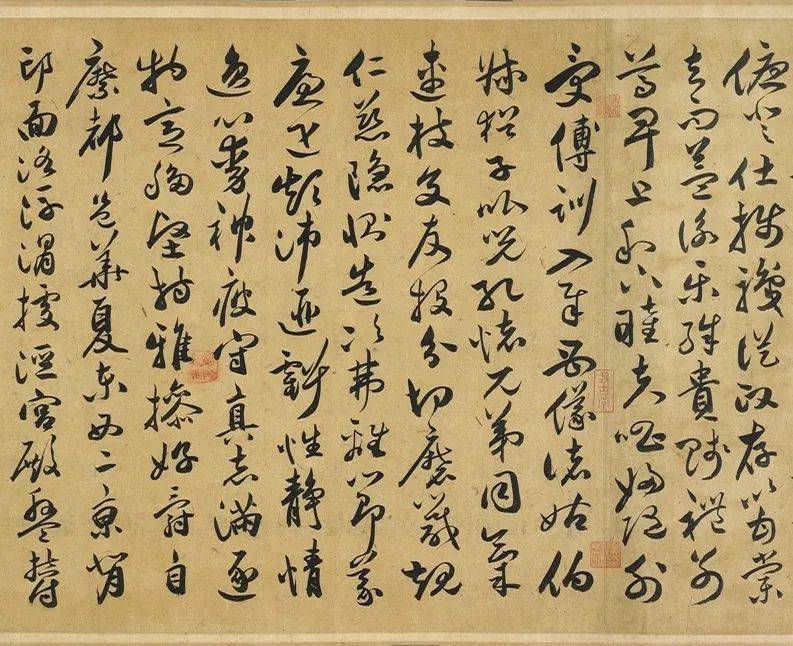 優登仕攝職從政存以甘棠
去而益詠樂殊貴賤禮別
尊卑上和下睦夫唱婦隨外
受傅訓入奉母儀諸姑伯
叔猶子比兒孔懷兄弟同氣
連枝交友投分切磨箴規
仁慈隱惻造次弗離節義
廉退顛沛匪虧性靜情
逸心動神疲守真志滿逐
物意移堅持雅操好爵自
縻都邑華夏東西二京背
邙面洛浮渭據涇宮殿盤鬱